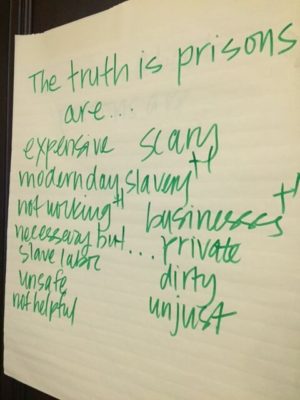 The truth is prisons
are...
expensive scary
modern day slavery +1
not working +1 businesses +1
necessary but... private
slave labor dirty
unsafe unjust
not helpful